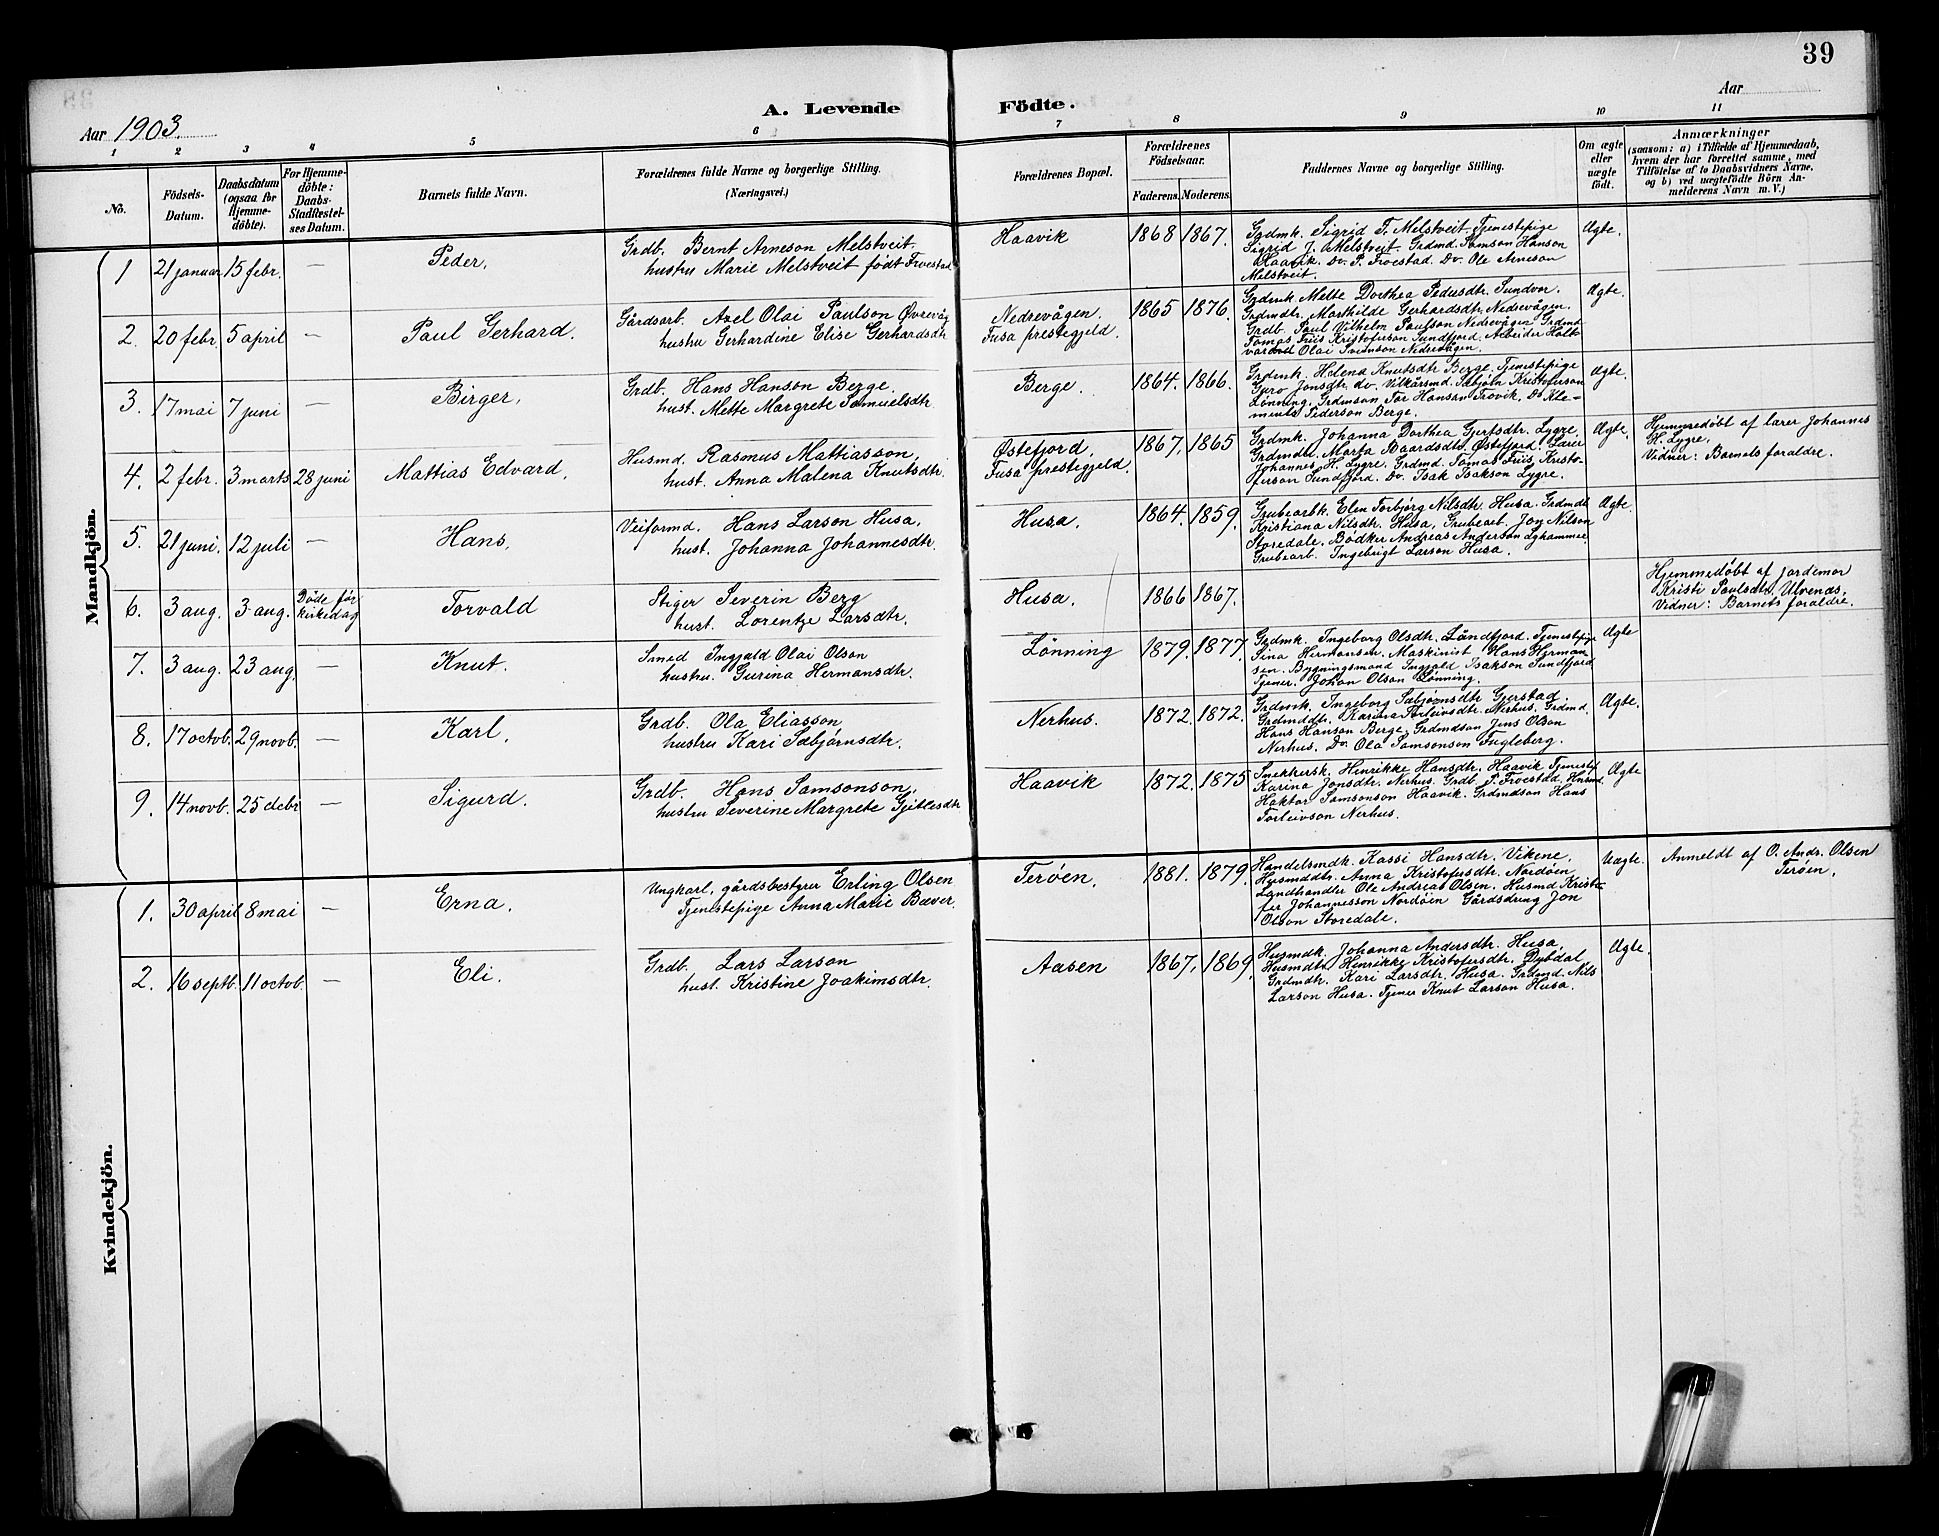 39
Aar 1903.
A. Levende Födte.
Aar
1 2 3 4 5 6 7 8 9 10 11
No.
Födsels-Datum.
Daabsdatum (ogsaa for Hjemme-döbte).
For Hjemme-döbte: Daabs-Stadfæstel-ses Datum.
Barnets fulde Navn.
Forældrenes fulde Navne og borgerlige Stilling.
(Næringsvei.)
Forældrenes Bopæl.
Forældrenes Födselsaar.
Faderens. Moderens.
Faddernes Navne og borgerlige Stilling.
Om ægte eller uægte födt.
Anmærkninger
(saasom: a) i Tilfælde af Hjemmedaab,
hvem der har forrettet samme, med
Tilföielse af to Daabsvidners Navne,
og b) ved uægtefödte Börn An-
melderens Navn m. V.)
Mandkjön.
1 21 januar 15 febr. — Peder.
Grdb. Bernt Arneson Melstveit.
hustru Marie Melstveit født Froestad
Haavik 1868 1867.
Grdmk. Sigrid T. Melstveit. Tjenestepige
Sigrid J. Melstveit. Grdmd. Samson Hanson
Haavik. Do. P. Froestad. Do. Ole Arneson
Melstveit.
Ægte.
2. 20 febr. 5 april — Paul Gerhard.
Gårdsarb. Axel Olai Paulson Øvrevåg
hustru Gerhardine Elise Gerhardsdtr
Nedrevågen.
Fusa prestegjeld.
1865 1876.
Grdmk Mette Dorthea Pedersdtr. Sundvor.
Grdmdtr. Marthilde Gerhardsdtr. Nedrevågen.
Grdb. Paul Vilhelm Paulson Nedrevågen Grdmd
Tomas Friis Kristoferson Sundfjord. Arbeider
Olai Svenson Nedrevågen.
Ægte.
3. 17 mai 7 juni — Birger.
Grdb. Hans Hanson Berge.
hust. Mette Margrete Samuelsdtr
Berge. 1864. 1866.
Grdmk. Helena Knutsdtr Berge. Tjenestepige
Guro Jonsdtr. do. Vilkårsmd. Sæbjörn Kristoferson
Lønning. Grdmson Tor Hanson Trovik. Do Kle-
ments Pederson Berge.
Ægte.
4. 2 febr. 3 marts 28 juni Mattias Edvard.
Husmd. Rasmus Mattiasson,
hust. Anna Malena Knutsdtr.
Østefjord,
Fusa prestegjeld.
1867, 1865
Grdmk. Johanna Dorthea Gjertsdtr. Lygre.
Grdmdtr. Marta Baardsdtr. Østefjord. Lærer
Johannes H. Lygre. Grdmd. Tomas Friis Kristo-
ferson Sundfjord. Do. Isak Isakson Lygre.
Ægte.
Hjemmedøbt af lærer Johannes
H. Lygre.
Vidner: Barnets forældre.
5. 21 juni. 12 juli — Hans.
Veiformd. Hans Larson Husa.
hust. Johanna Johannesdtr.
Husa. 1864. 1859.
Grubearbk. Elen Torbjørg Nilsdtr. Husa. Grdmdtr
Kristiana Nilsdtr. Husa, Grubearb. Jon Nilson
Storedale. Bødker Andreas Anderson Lghammer
Grubearb. Ingebrigt Larson Husa.
Ægte.
6. 3 aug. 3 aug. Døde før kirkedag Torvald
Stiger Severin Berg
hust. Lorentze Larsdtr.
Husa. 1866 1867.
Hjemmedøbt af jordemor
Kristi Paulsdtr. Ulvenås,
Vidner: Barnets forældre.
7. 3 aug. 23 aug. — Knut.
Smed Ingjald Olai Olson
hustru. Gurina Hermansdtr.
Lønning 1879. 1877.
Grdmk. Ingeborg Olsdtr. Låndfjord. Tjenestepige
Sina Hermansen. Maskinist Hans Herman-
sen. Bygningsmand Ingjald Isakson Sundfjord
Tjener. Johan Olson Lønning.
Ægte
8. 17 octob. 29 novb. — Karl.
Grdb. Ola Eliasson
hustru Kari Sæbjørnsdtr.
Nerhus. 1872. 1872.
Grdmk. Ingeborg Sæbjørnsdtr Gjerstad.
Grdmddtr. Karina Torleivsdtr. Nerhus. Grdmd.
Hans Hanson Berge. Grdmdson Jens Olson
Nerhus. Do. Ola Samsonson Fugleberg.
Ægte.
9. 14 novb. 25 decbr — Sigurd.
Grdb. Hans Samsonson,
hustru Severine Margrete Gjitlesdtr
Haavik 1872. 1875
Snekkersk. Henrikke Hansdtr. Haavik Tjenestep
Karina Jonsdtr. Nerhus. Grdb. P. Froestad. Husmd.
Haktor Samsonson Haavik. Grdmdson Hans
Torleivson Nerhus.
Ægte
Kvindekjön.
1. 30 april 8 mai — Erna.
Ungkarl, gårdsbestyrer Erling Olsen
Tjenestepige Anna Marie Bæver.
Terøen. 1881. 1879.
Handelsmdk. Kassi Hansdtr. Vikene.
Husmddtr. Anna Kristofersdtr. Nordøen
Landhandler Ole Andreas Olsen. Husmd Kristo-
fer Johannesson Nordöen Gårdsdreng Jon
Olson Storedale.
Uægte.
Anmeldt af O. Andr. Olsen
Terøen.
2. 16 septb. 11 octob. — Eli.
Grdb. Lars Larson
hust. Kristine Joakimsdtr.
Aasen 1867, 1869.
Husmdk. Johanna Andersdtr. Husa.
Husmdtr. Henrikke Kristofersdtr. Dybdal
Grdmdtr. Kari Larsdtr. Husa. Grdmd. Nils
Larson Husa. Tjener Knut Larson Husa.
Ægte.